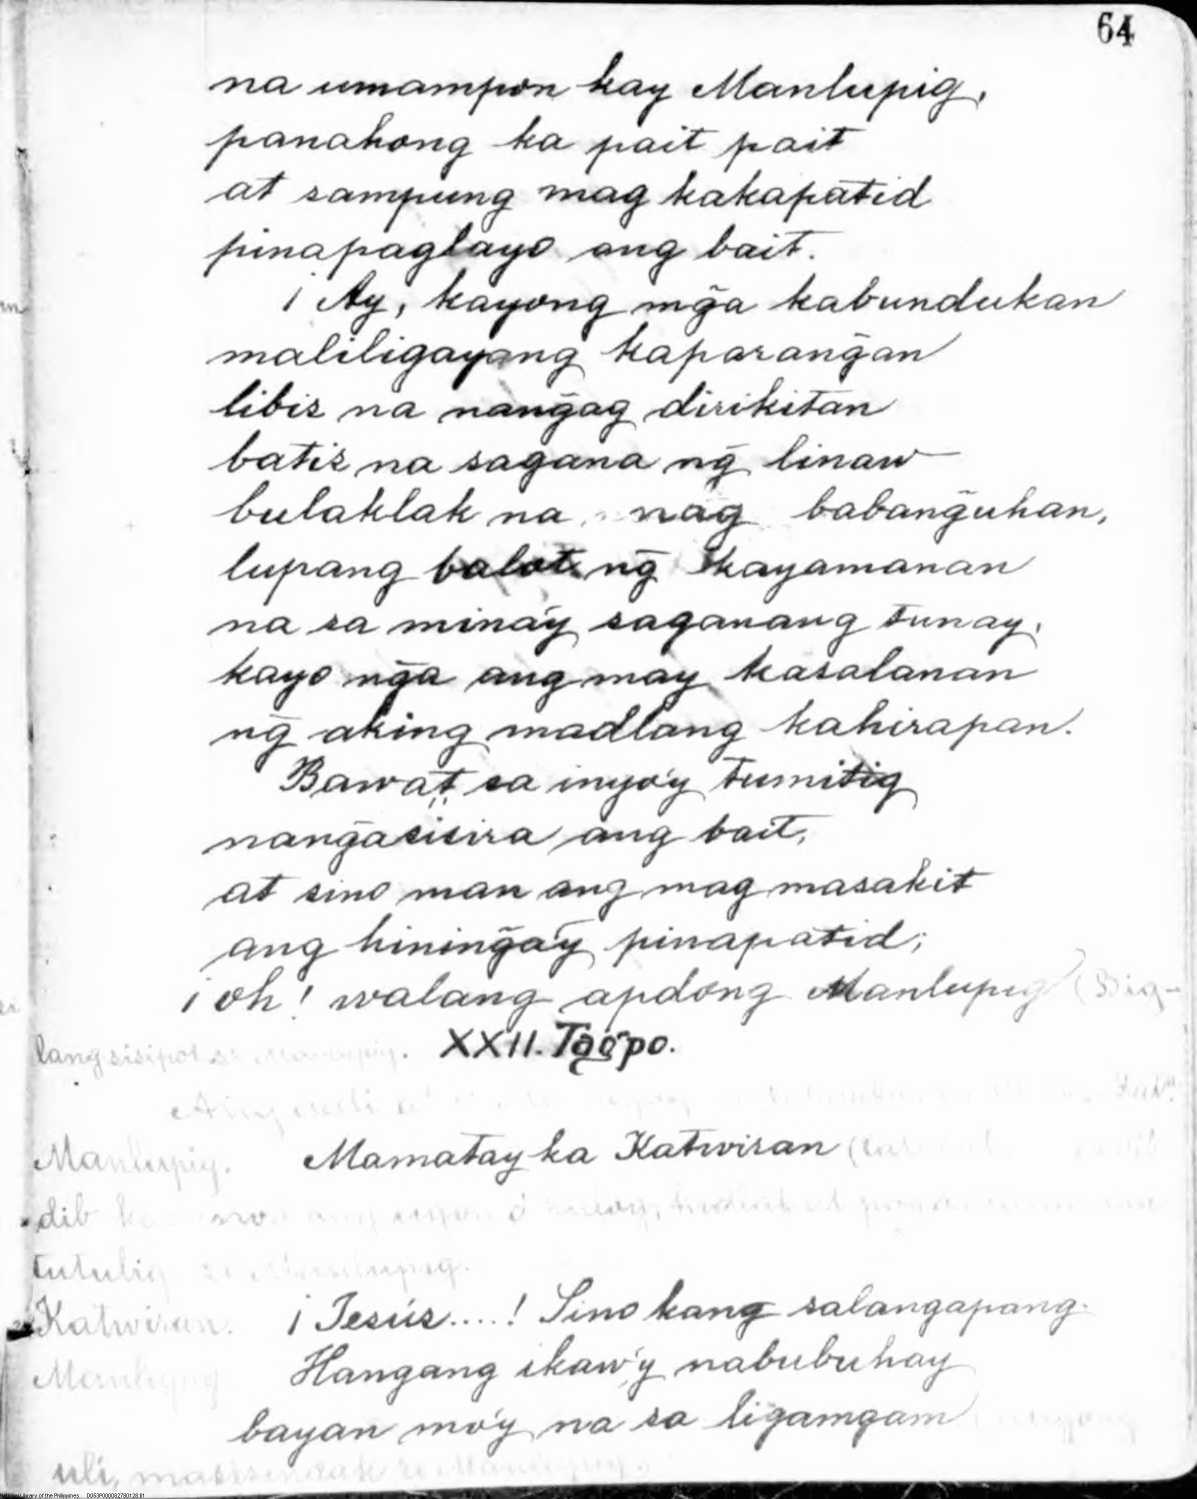 64
na umampon kay Manlupig,
panahong ka pait pait
at sampung mag kakapatid
pinapaglayo ang bait.
¡Ay, kayong mg̃a kabundukan
maliligayang kaparang̃an
libis na nang̃ag dirikitan
batis na sagana ng̃ linaw
bulaklak na nag babang̃uhan,
lupang balot ng̃ kayamanan
na sa mina'y saganang tunay,
kayo ng̃a ang may kasalanan
ng̃ aking madlang kahirapan.
Bawat sa inyo'y tumitig
nang̃asisira ang bait,
at sino man ang mag masakit
ang hining̃a'y pinapatid;
¡oh! walang apdong Manlupig (Big-
lang sisipot si Manlupig.
XXII. Tagpo.
Manlupig. Mamatay ka Katwiran
dib
tutulig si Manlupig.
Katwiran. ¡Jesús....! Sino kang salangapang.
Manlupig Hangang ikaw'y nabubuhay
bayan mo'y na sa lig̃amgam
uli, si Manlupig.
National Library of the Philippines